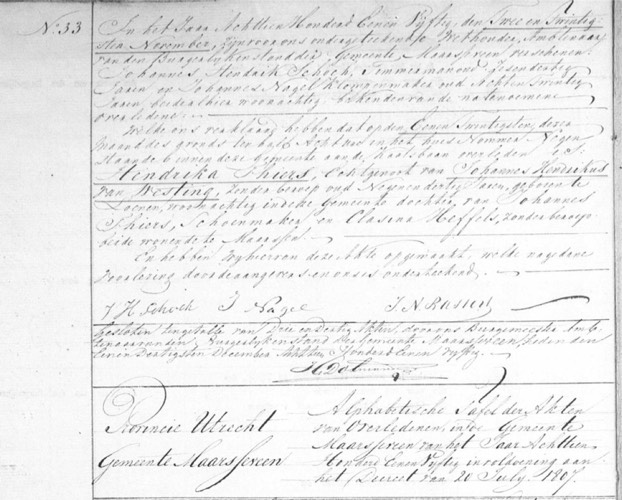 No. 33
In het Jaar Achttien Honderd Eenen Vyftig, den Twee en Twintig-
sten November, zyn voor ons ondergeteekende Wethouder, Ambtenaar
van den Burgerlyken Stand der Gemeente Maarsseveen verschenen:
Johannes Hendrik Schoch, Timmerman oud
Jaren en Johannes Nagel Klompenmaker oud Achten Twintig
Jaren, beide alhier woonachtig bekenden van de natenoemene
overledene
Welke ons verklaard hebben dat op den Eenen Twintigsten dezer
maand des avonds ten half Acht ure in het huis Nommer Negen
staande binnen deze Gemeente aan de overleden is
Hendrika Thiers, Echtgenoote van Johannes Hendrikus
van Westing, zonder beroep oud Negenendertig Jaren, geboren te
Loenen, woonachtig in deze Gemeente dochter van Johannes
Thiers, Schoenmaker en Clasina Heffels, zonder beroep
beide wonende te Maarssen.
En hebben wy hiervan deze Akte opgemaakt, welke na gedane
voorlezing door de aangevers en ons is onderteekend.
J H Schoch J Nagel J A
Gesloten ten getalle van Drie en Dertig Akten, door ons Burgemeester Amb-
tenaar van den Burgerlyken Stand der Gemeente Maarsseveen, heden den
Eenen Dertigsten December Achttien Honderd Eenen Vyftig.
Provincie Utrecht
Gemeente Maarsseveen
Alphabetische Tafel der Akten
van Overledenen, in de Gemeente
Maarsseveen van het Jaar Achttien
Honderd Eenen Vyftig in voldoening aan
het Decreet van 20 July 1807.